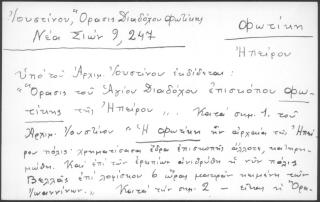 Ἰουστίνου, "Ὅρασις Διαδόχου Φωτίκης
Φωτίκη
Νέα Σιών 9, 247
Ἠπείρου
Ὑπὸ τοῦ Ἀρχιμ. Ἰουστίνου ἐκδίδεται:
"Ὅρασις τοῦ Ἁγίου Διαδόχου ἐπισκόπου Φω-
τίκης τῆς Ἠπείρου". Κατὰ σημ. 1. τοῦ
Ἀρχιμ. Ἰουστίνου "Ἡ Φωτίκη ἦν ἀρχαία τῆς Ἠπεί
ρου πόλις· χρηματίσασα ἕδρα ἐπισκοπῆς ἄλλοτε,
Καὶ ἐπὶ τῶν ἐρειπίων ἀνιδρύθη ἡ νῦν πόλις
Βελλᾶς ἐπὶ λοφίσκου 6 ὥρας μακρὰν κειμένη τῶν
Ἰωαννίνων." Κατὰ τὴν σημ. 2 - εἶναι ἡ Ὅρα-